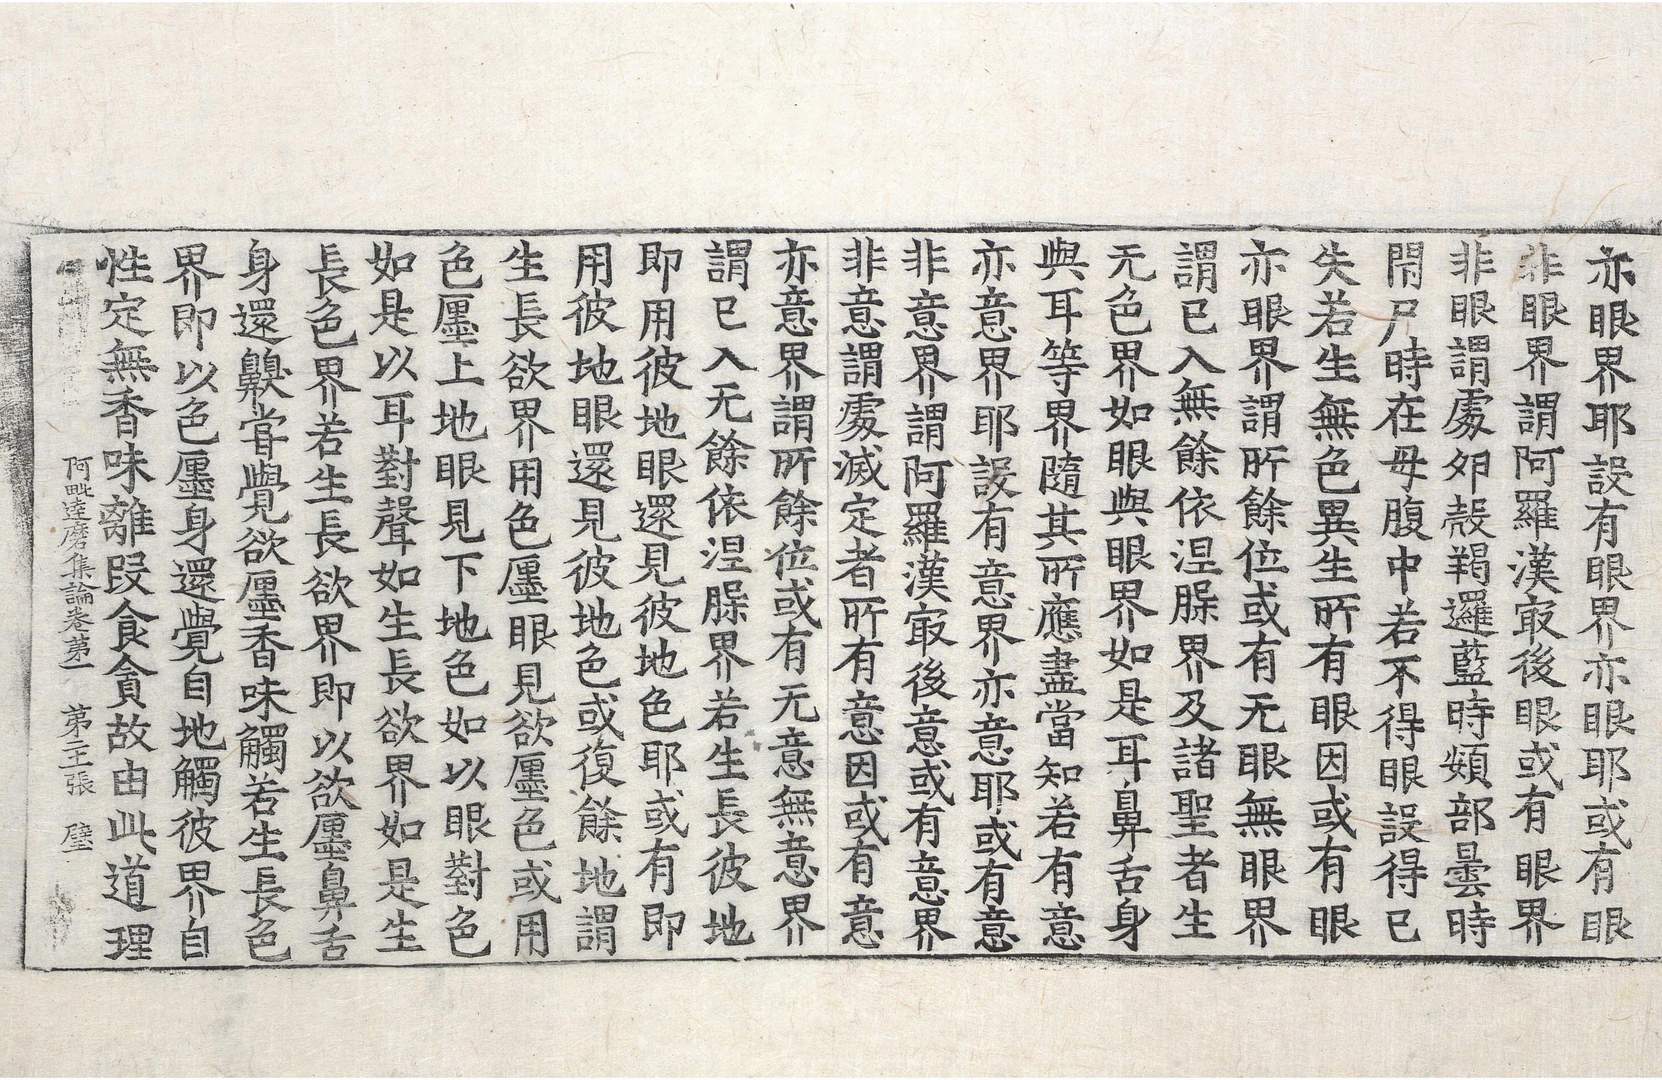 亦眼界耶設有眼界亦眼耶或有眼
非眼界謂阿羅漢㝡後眼或有眼界
非眼謂處夘㲉羯邏藍時頞部曇時
閇尸時在母腹中若不得眼設得已
失若生無色異生所有眼因或有眼
亦眼界謂所餘位或有无眼無眼界
謂已入無餘依涅槃界及諸聖者生
无色界如眼與眼界如是耳鼻舌身
與耳等界隨其所應盡當知若有意
亦意界耶設有意界亦意耶或有意
非意界謂阿羅漢㝡後意或有意界
非意謂處滅定者所有意因或有意
亦意界謂所餘位或有无意無意界
謂已入无餘依涅槃界若生長彼地
即用彼地眼還見彼地色耶或有即
用彼地眼還見彼地色或復餘地謂
生長欲界用色㕓眼見欲㕓色或用
色㕓上地眼見下地色如以眼對色
如是以耳對聲如生長欲界如是生
長色界若生長欲界即以欲㕓鼻舌
身還齅甞覺欲㕓香味觸若生長色
界即以色㕓身還覺自地觸彼界自
性定無香味離段食貪故由此道理
阿毗達磨集論卷第一 第二十張 璧